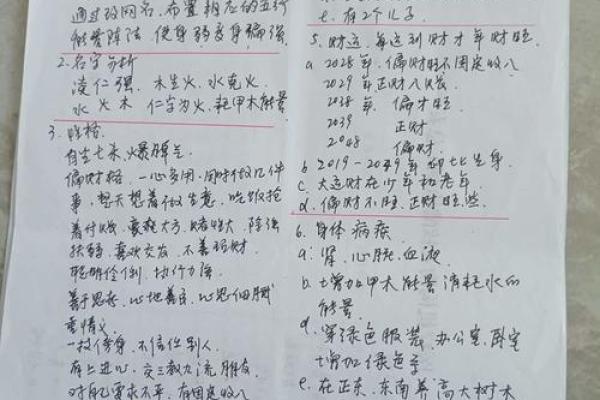 通过改网名、布置相应的五行
能量阵法，使身弱变身偏强。
2.名字分析
凌仁强. 木生火，水克火
水 火 木 仁字为火，耗甲木能量
3、性格
有生七来，爆脾气
偏财格，一心多用，同时做几件
事，整天想着做生意，吃饭抢
着付钱，豪爽大方，赌性大，除强
扶弱，喜欢交友，不善理财.
聪明伶俐，执行力
善于思考，心地善良，心思细腻
重情义
一技傍身，不信任别人，
有上进心，交三教九流朋友
对自己要求不平，有固定收入
七、有2个儿子
5、财运，每逢到财才年财旺.
a 2028年，偏财旺不固定收入
2029年正财入账
2038年，偏才旺
2039 正财
2048 偏财
b 2019-2049年 生身
c、大运财在少年和老年.
d、偏财不旺、正财旺些.
6、身体病疾
a：肾、心脏、血液
b、增加甲木能量消耗水的
能量.
d、穿绿色服装、办公室、卧室
增加绿色
e、在正东、东南养高大树木